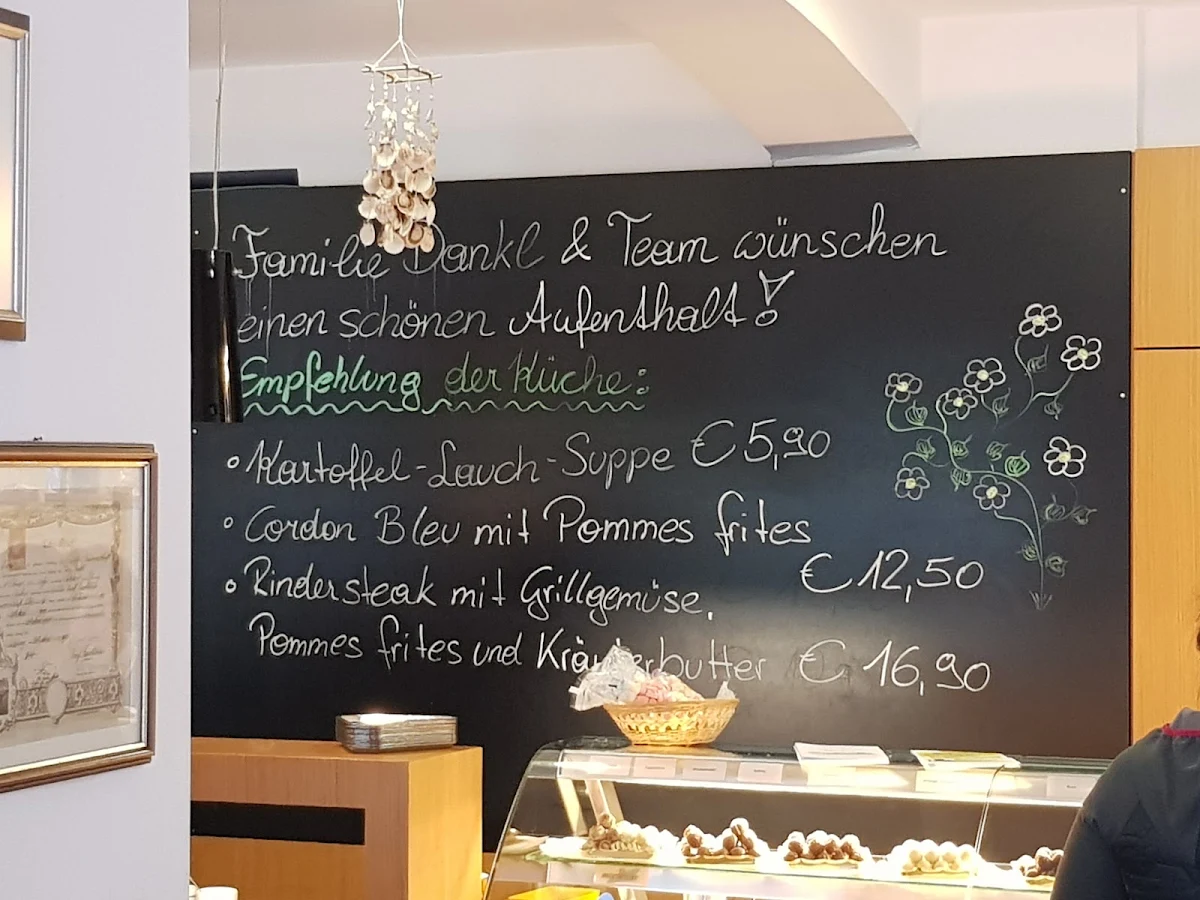 Familie Dankl & Team wünschen
einen schönen Aufenthalt!
Empfehlung der Küche:
Kartoffel-Lauch-Suppe € 5,90
Cordon Bleu mit Pommes frites
€ 12,50
Rindersteak mit Grillgemüse,
Pommes frites und Kräuterbutter € 16,90